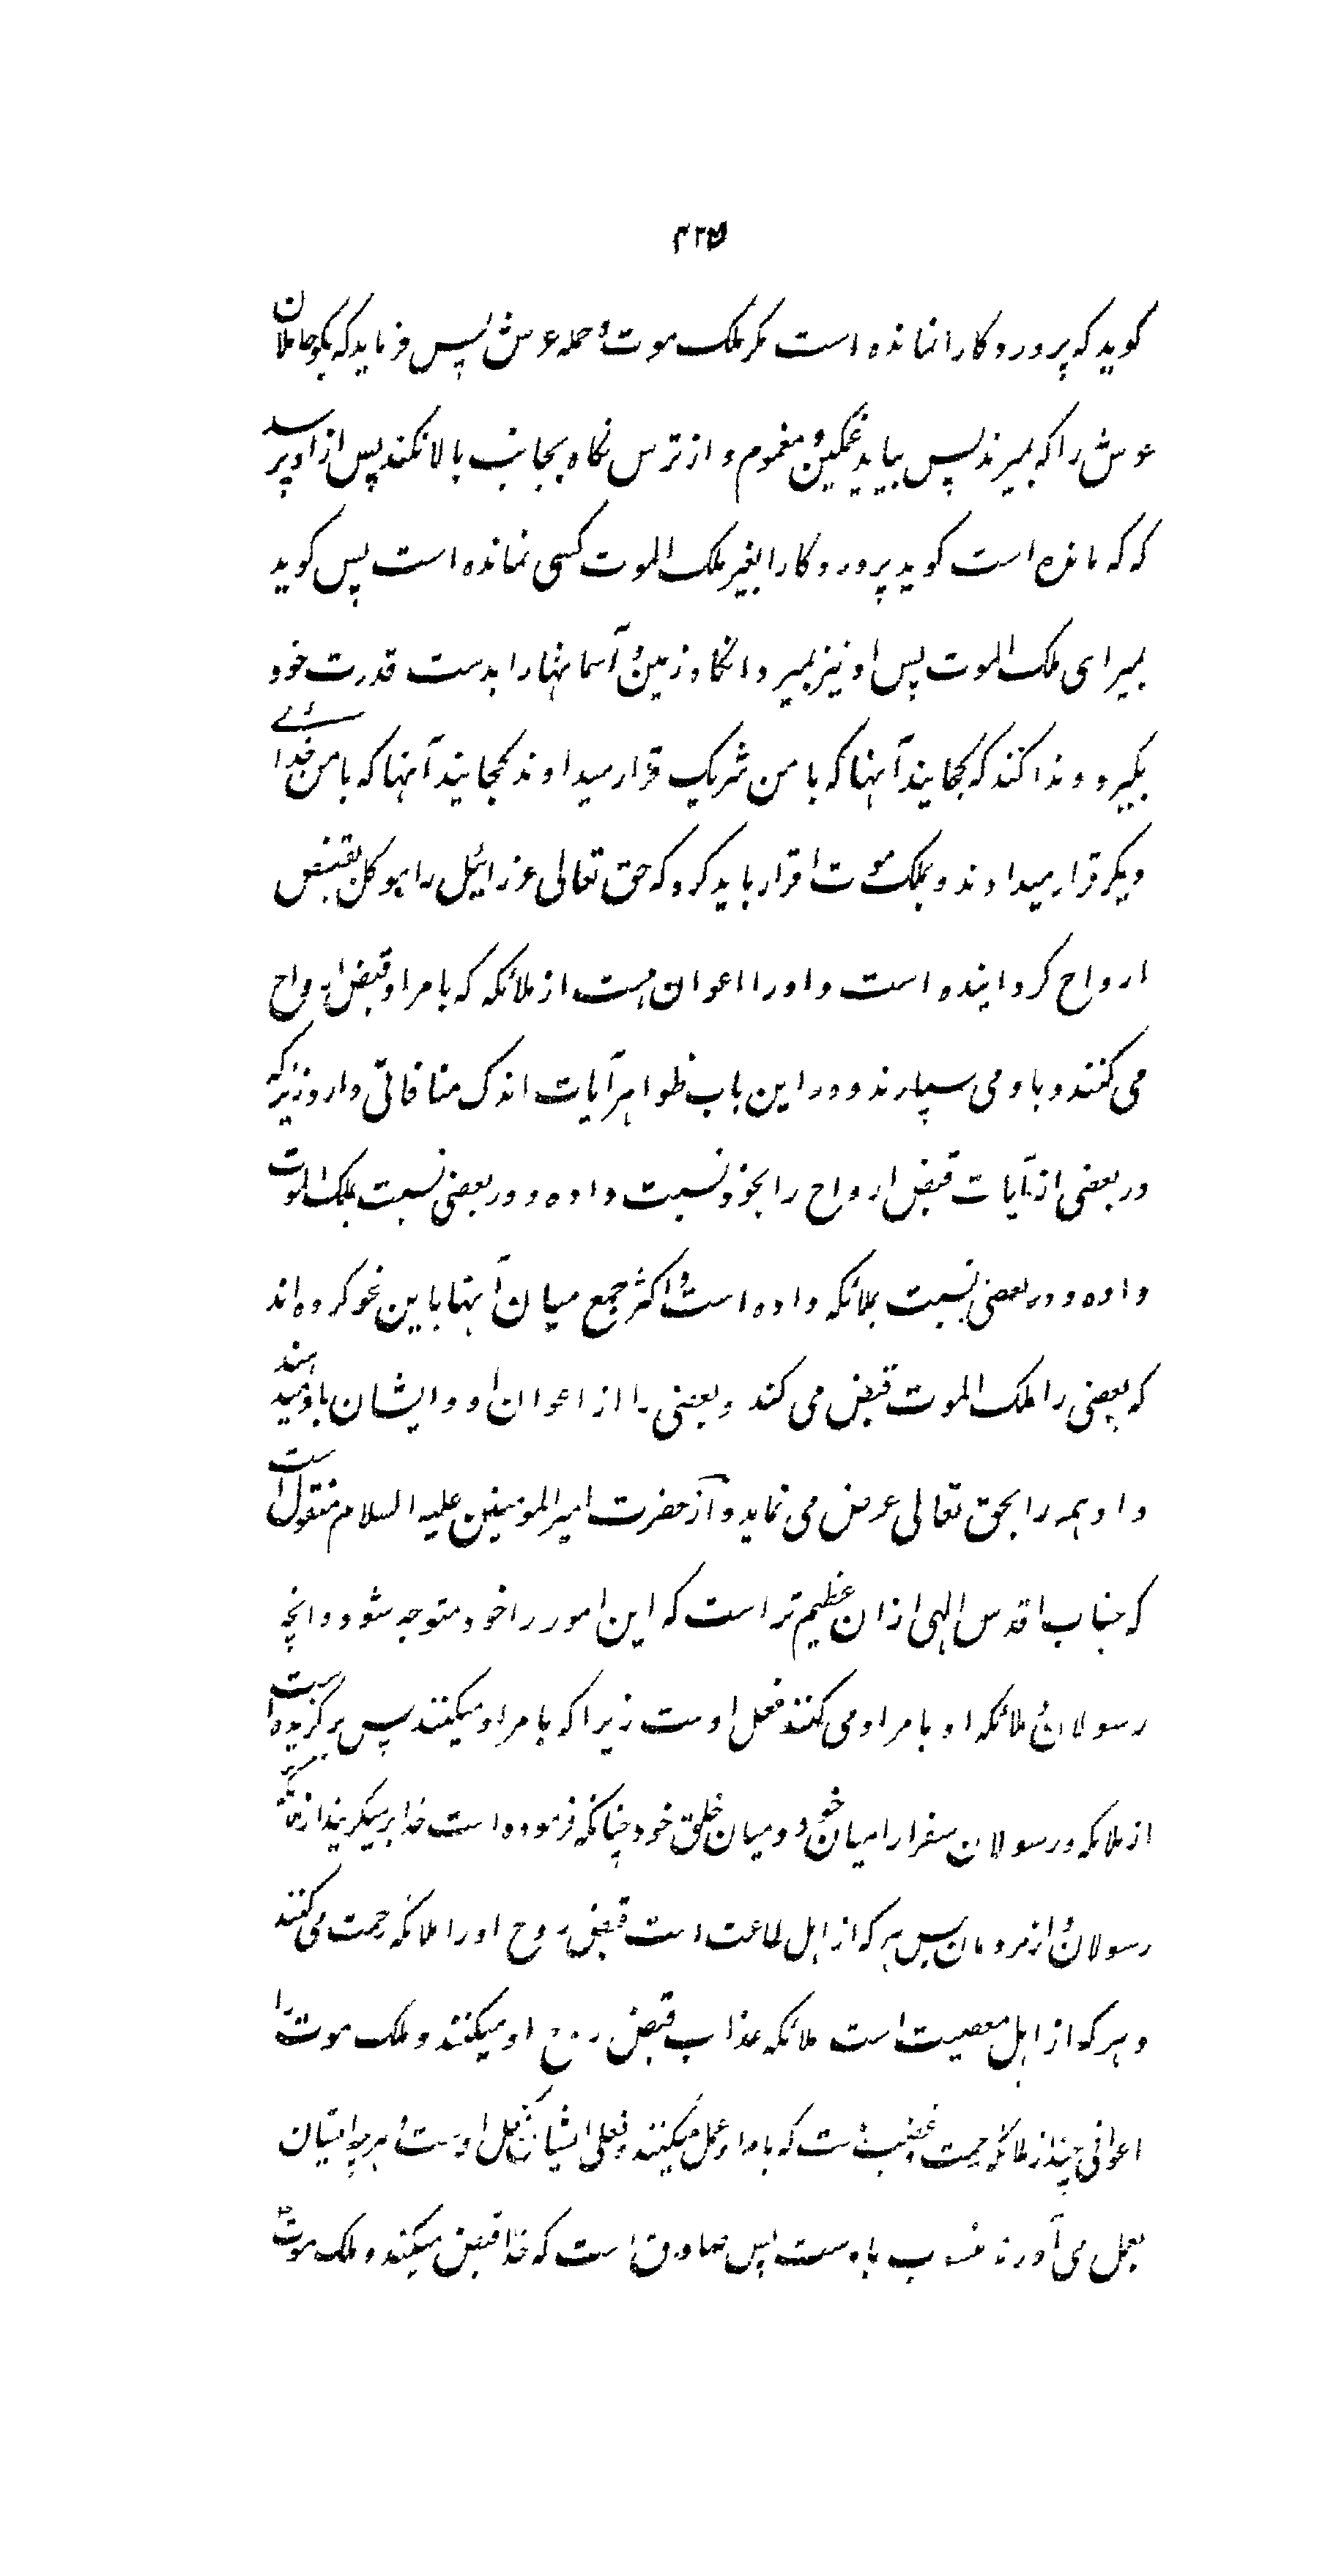 ۴۳۵
کوید که پروردکارا نمانده است مکر ملک موت و حمله عرش پس فرماید که بکو حاملان
عرش را که بمیرند پس بیاید غمکین و مغموم و از ترس نکاه بجانب بالا نکند پس از او پرسد
که که مانده است کوید پروردکارا بغیر ملک الموت کسی نمانده است پس کوید
بمیر ای ملک الموت پس او نیز بمیرد انکاه زمین و آسمانها را بدست قدرت خود
بکیرد و ندا کند که کجایند آنها که با من شریک قرار میدادند کجایند آنها که با من خدائے
دیکر قرار میدادند و بملک موت اقرار باید کرد که حق تعالی عزرائیل را موکل بقبض
ارواح کردانیده است و او را اعوان هست از ملائکه که بامر او قبض ارواح
می کنند و باو می سپارند و در این باب ظواهر آیات اندک منافاتی دارد زیرا که
در بعضی از آیات قبض ارواح را بخود نسبت داده و در بعضی نسبت بملک الموت
داده و در بعضی نسبت بملائکه داده است و اکثر جمع میان آنها باین نحو کرده اند
که بعضی را ملک الموت قبض می کند و بعضی را از اعوان او و ایشان باو میدهند
و او همه را بحق تعالی عرض می نماید و از حضرت امیر المومنین علیه السلام منقول است
که جناب اقدس الهی ازان عظیم تر است که این امور را خود متوجه شود و انچه
رسولان و ملائکه او بامر او می کنند فعل اوست زیرا که بامر او میکنند پس برکزیده است
از ملائکه و رسولان سفرا را میان خود و میان خلق خود چنانکه فرموده است خدا بر میکزیند از ملائکه
رسولان و از مردمان پس هر که از اهل طاعت است قبض روح او را ملائکه رحمت می کنند
و هر که از اهل معصیت است ملائکه عذاب قبض روح او میکنند و ملک موت را
اعوانی چند از ملائکه رحمت و غضب هست که بامر او عمل میکنند و فعل ایشان فعل اوست و هرچه ایشان
بعمل می آورند منسوب باوست پس صادق است که خدا قبض میکند و ملک موت